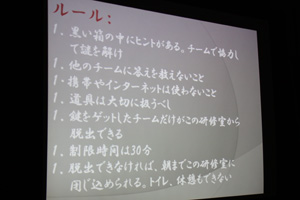 ルール：
1. 黒い箱の中にヒントがある。チームで協力
して鍵を解け
1. 他のチームに答えを教えないこと
1. 携帯やインターネットは使わないこと
1. 道具は大切に扱うべし
1. 鍵をゲットしたチームだけがこの研修室から
脱出できる
1. 制限時間は30分
1. 脱出できなければ、朝までこの研修室に
閉じ込められる。トイレ、休憩もできない